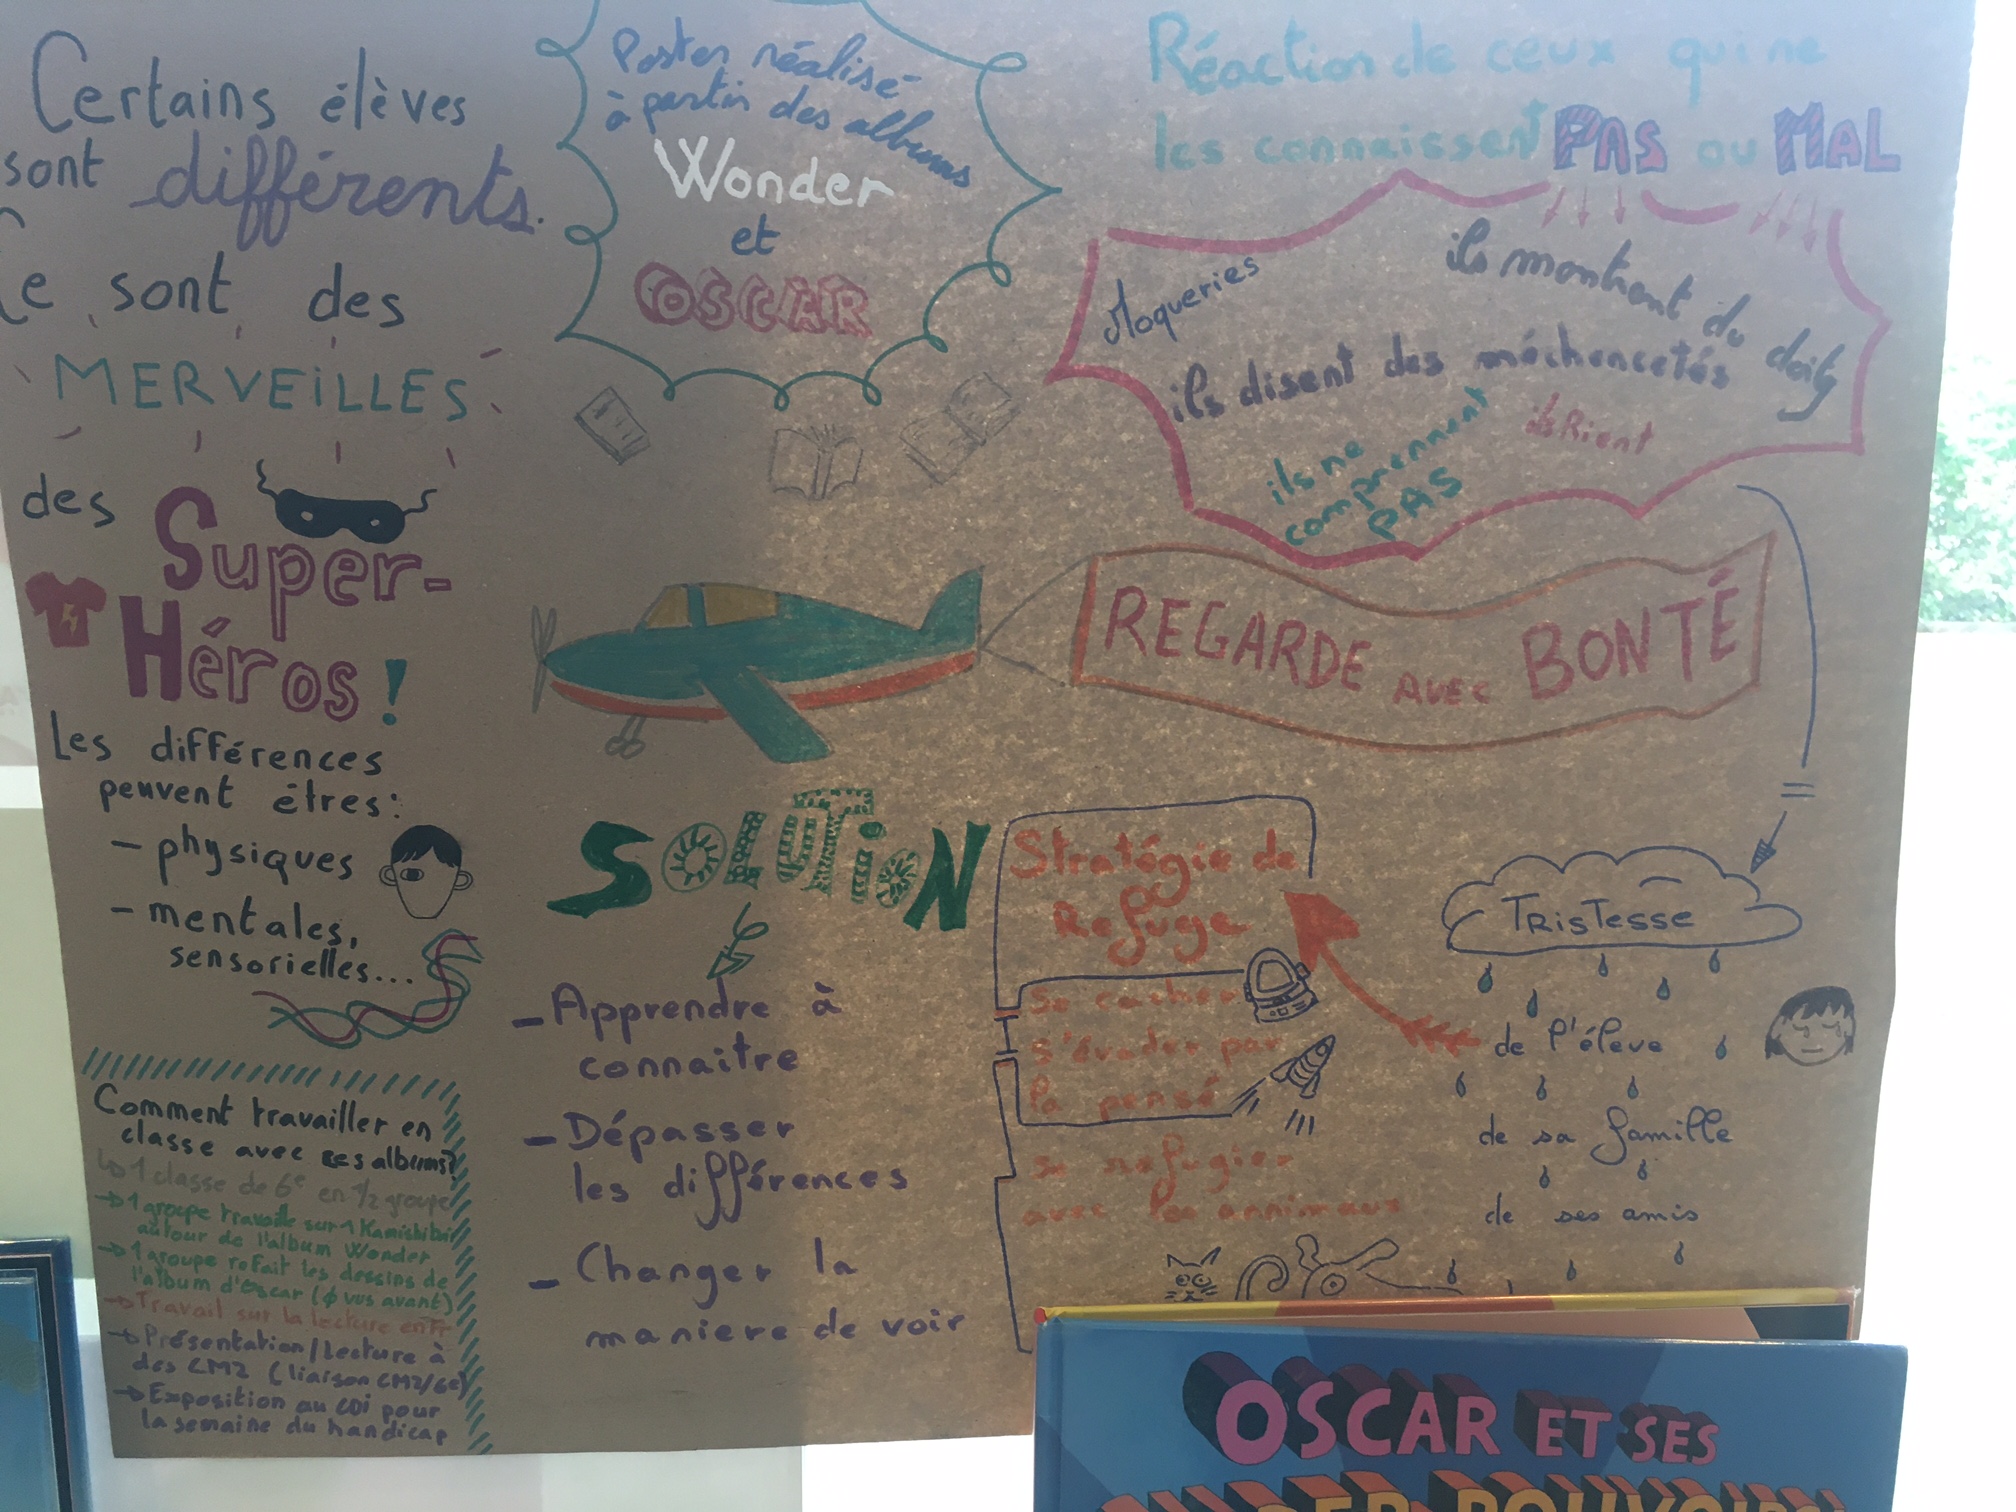 Certains élèves
sont différents.
Ce sont des
MERVEILLES
des
Super-
Héros !
Les différences
peuvent êtres :
- physiques
- mentales,
sensorielles...
Comment travailler en
classe avec ces albums?
↳ 1 classe de 6e en 1/2 groupe
→ 1 groupe travaille sur 1 Kamishibaï
autour de l'album Wonder
→ 1 groupe refait les dessins de
l'album d'Oscar (ϕ vus avant)
→ Travail sur la lecture en Fr
→ Présentation/Lecture à
des CM2 (liaison CM2/6e)
→ Exposition au CDI pour
la semaine du handicap
Poster réalisé
à partir des albums
Wonder
et
OSCAR
Réaction de ceux qui ne
les connaissent PAS ou MAL
Moqueries
ils montrent du doigt
ils disent des méchancetés
ils ne
comprennent
PAS
ils Rient
REGARDE AVEC BONTÉ
SOLUTION
- Apprendre à
connaitre
- Dépasser
les différences
- Changer la
maniere de voir
Stratégie de
Refuge
se cacher
s'évader par
la pensé
se refugier
avec les annimaux
=
TRISTESSE
de l'élève
de sa famille
de ses amis
OSCAR ET SES